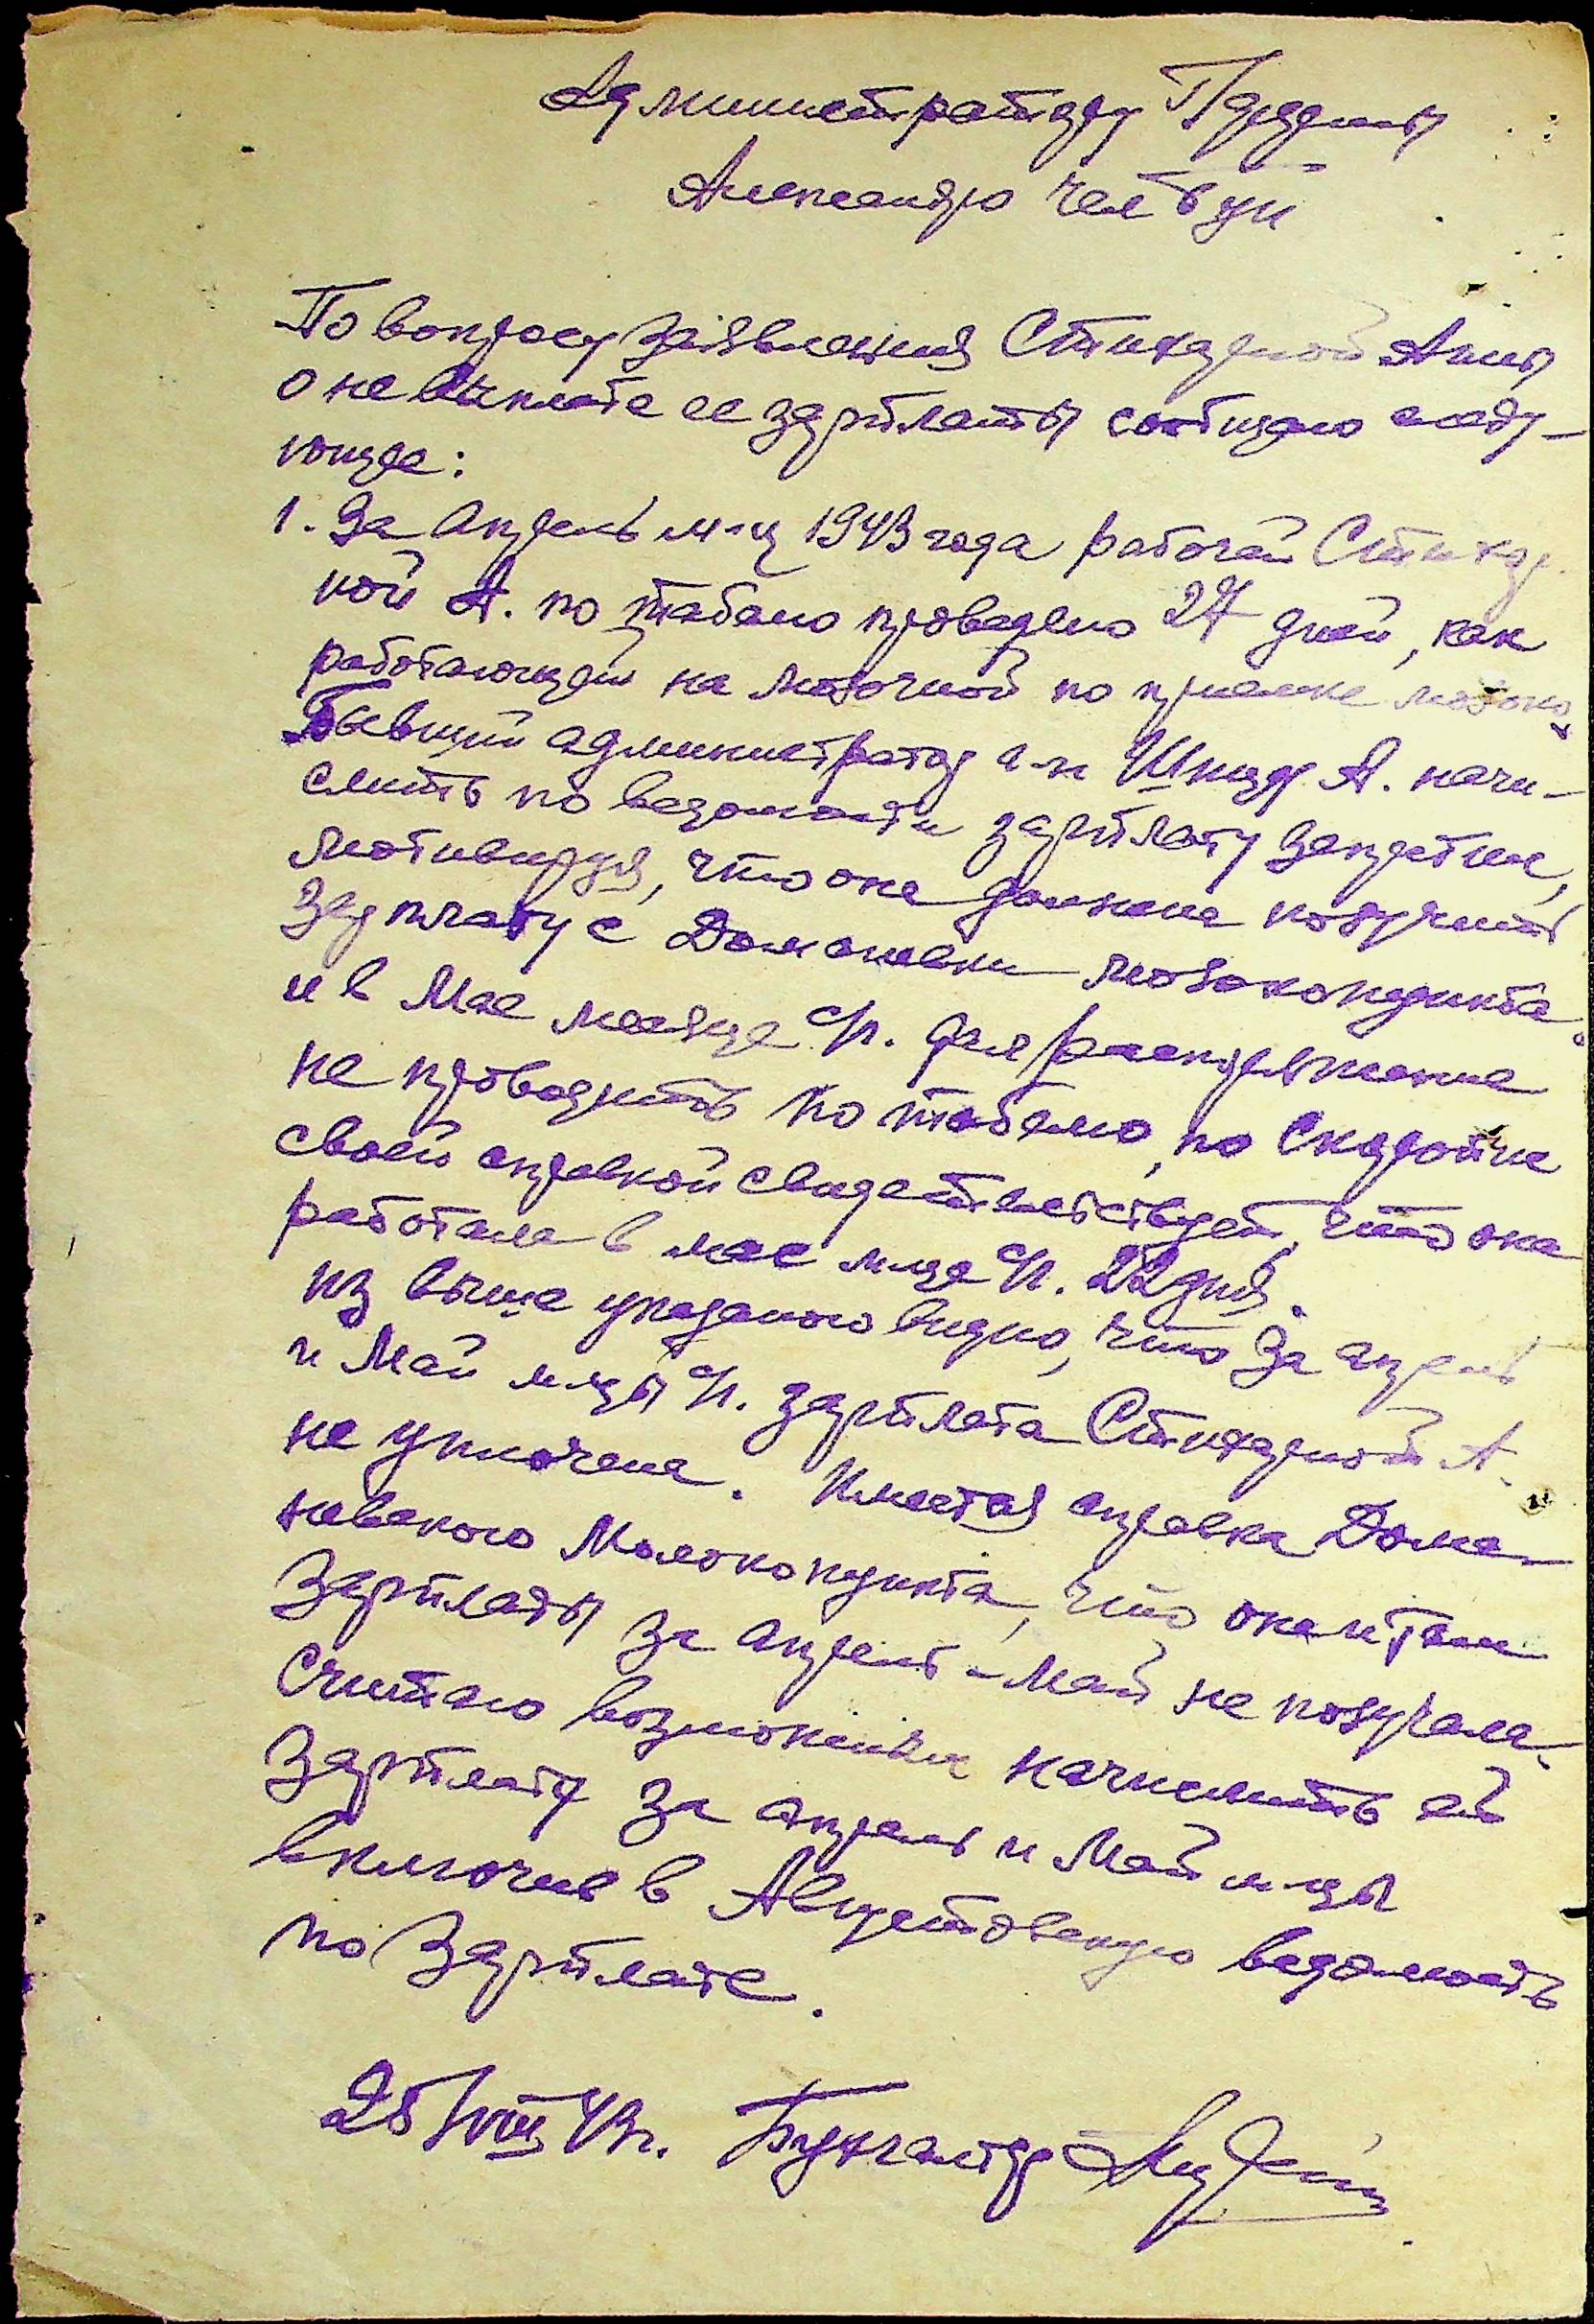 Администратору
Александро
По вопросу заявления Стихарной Анны
о не выплате ее зарплаты сообщаю следу-
ющее:
1. За Апрель м-ц 1943 года рабочей Стихар
ной А. по табелю проведено 27 дней, как
работающей на молочной по приемке молока.
Бывший администратор г-н Шнидр А. начи-
слить по ведомости зарплату запретил,
мотивируя, что она должна получить
зарплату с Доманевки молокопункта.
и в Мае месяце с/г. дал распоряжение
не проводить по табелю, но
своей справкой свидетельствует, что она
работала в мае м-це с/г. 22 дня.
Из выше указаного видно, что за апрель
и Май м-цы с/г. зарплата Стихарной А.
не уплочена. Имеется справка Дома-
невского Молокопункта, что она и там
зарплаты за апрель-май не получала.
Считаю возможным начислить ей
зарплату за апрель и Май м-цы
включив в Августовскую ведомость
по зарплате.
25/VIII 43г. Бухгалтер